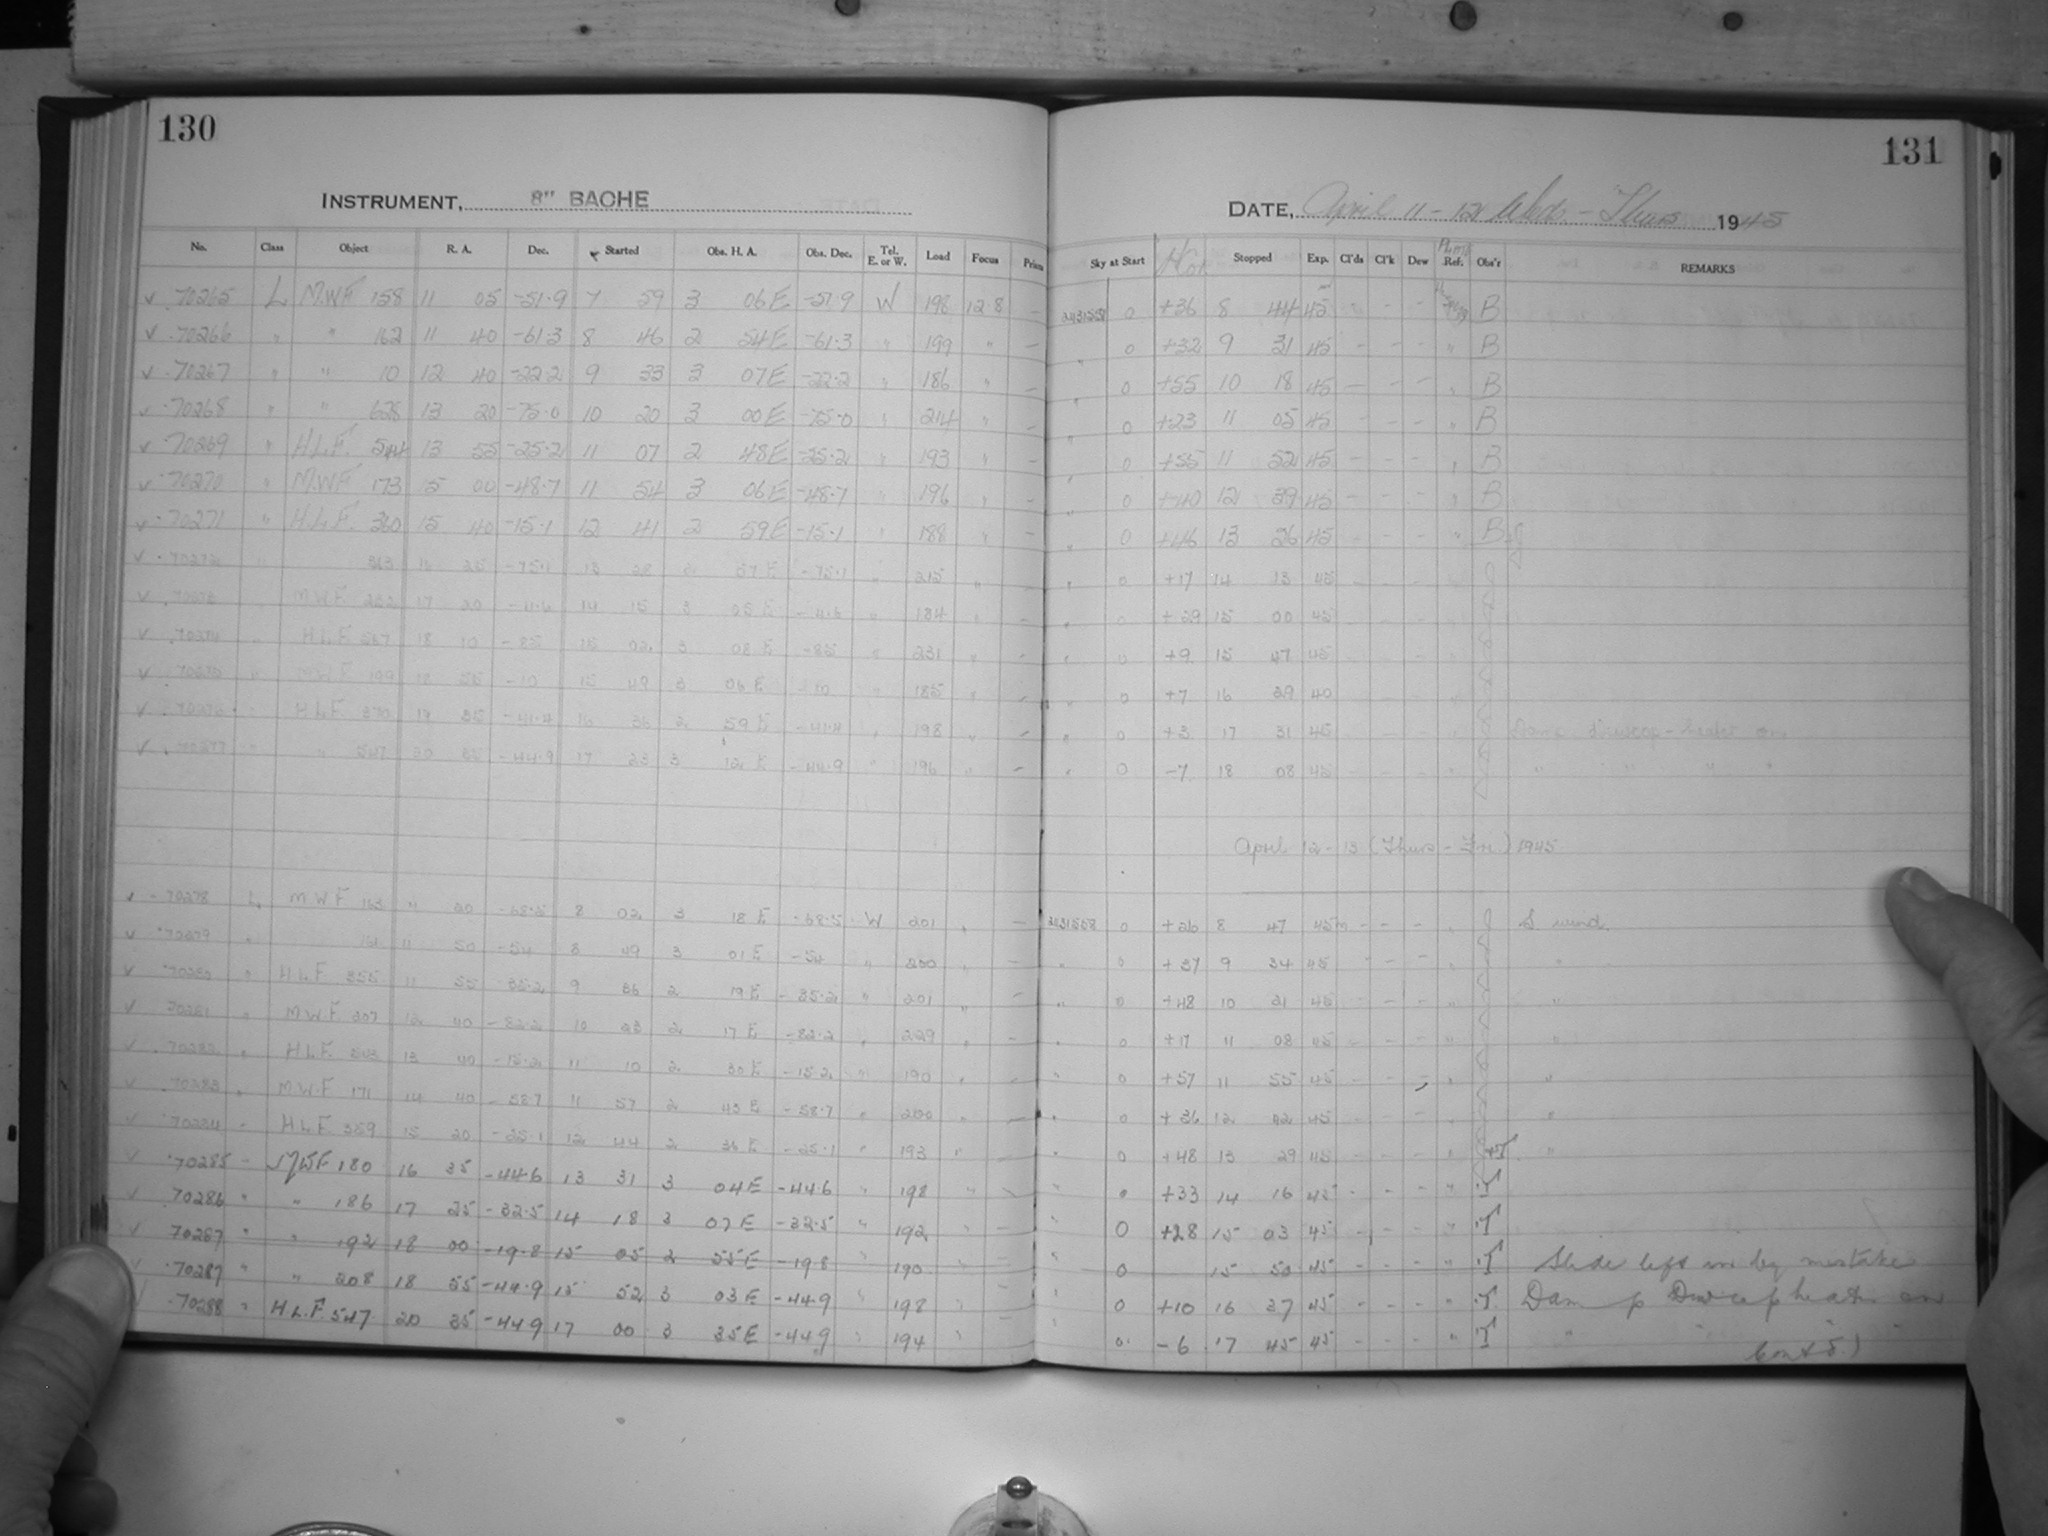 130
INSTRUMENT, 8" BACHE
No. Class Object R. A. Dec. Started Obs. H. A. Obs. Dec. Tel. E. or W. Load Focus Prism
70265 L M.W.F 158 11 05 -51.9 7 59 3 06 E -51.9 W 198 12.8 -
70266 " " 162 11 40 -61.3 8 46 2 54 E -61.3 " 199 " -
70267 " " 10 12 40 -22.2 9 33 3 07 E -22.2 " 186 " -
70268 " " 628 13 20 -75.0 10 20 3 00 E -75.0 " 214 " -
70269 " H.L.F. 13 55 -25.2 11 07 2 48 E -25.2 " 193 " -
70270 " M.W.F 173 15 00 -48.7 11 54 3 06 E -48.7 " 196 " -
70271 " H.L.F. 360 15 40 -15.1 12 41 2 59 E -15.1 " 188 " -
-75.1 13 28 57 E -75.1 " 215 " -
M.W.F. 17 20 -4.6 14 15 3 05 E -4.6 " 184 " -
70274 " H.L.F. 18 10 -85 15 02 3 08 E -85 " 231 " -
M.W.F 199 18 55 -10 15 49 3 06 E -10 " 185 " -
H.L.F. 370 19 35 -41.4 16 36 2 59 E -41.4 " 198 " -
70277 " " 547 20 35 -44.9 17 23 3 12 E -44.9 " 196 " -
70278 L M.W.F 163 " 20 -68.5 8 02 3 18 E -68.5 W 201 " -
70279 " 11 50 -54 8 49 3 01 E -54 " 200 " -
70280 " H.L.F. 355 11 55 -35.2 9 36 2 19 E -35.2 " 201 " -
70281 " M.W.F. 207 12 40 -82.2 10 23 2 17 E -82.2 " 229 " -
70282 " H.L.F. 13 40 -15.2 11 10 2 30 E -15.2 " 190 " -
70283 " M.W.F 171 14 40 -58.7 11 57 2 43 E -58.7 " 200 " -
70284 " H.L.F. 359 15 20 -25.1 12 44 2 36 E -25.1 " 193 " -
70285 - MWF 180 16 35 -44.6 13 31 3 04 E -44.6 " 198 " -
70286 " " 186 17 25 -32.5 14 18 3 07 E -32.5 " 192 " -
70287 " " 192 18 00 -19.8 15 05 2 55 E -19.8 " 190 " -
70287 " " 208 18 55 -44.9 15 52 3 03 E -44.9 " 198 " -
70288 " H.L.F. 547 20 35 -44.9 17 00 3 35 E -44.9 " 194 " -
131
DATE, April 11 - 12 Weds - Thurs 1945
Sky at Start Stopped Exp. Cl'ds Cl'k Dew Ref. Obs'r REMARKS
2431558 0 +36 8 44 45 - - - B
" 0 +32 9 31 45 - - - " B
" 0 +55 10 18 45 - - - " B
" 0 +23 11 05 45 - - - " B
" 0 +55 11 52 45 - - - " B
" 0 +40 12 39 45 - - - " B
" 0 +46 13 26 45 - - - " B + J
" 0 +17 14 13 45 - - - " J
" 0 +29 15 00 45 - - - " J
" 0 +9 15 47 45 - - - " J
" 0 +7 16 39 40 - - - " J
" 0 +3 17 31 45 - - - " J Damp Dewcap-heater on.
" 0 -7 18 08 45 - - - " J " " " "
April 12-13 (Thurs - Fri) 1945
0 +26 8 47 45m - - - " J S wind.
" 0 +37 9 34 45 - - - " J "
" 0 +48 10 21 45 - - - " J "
" 0 +17 11 08 45 - - - " J "
" 0 +57 11 55 45 - - - " J "
" 0 +36 12 42 45 - - - " J "
" 0 +48 13 29 45 - - - " J+T "
" 0 +33 14 16 45 - - - " T
" 0 +28 15 03 45 - - - " T
" 0 15 50 45 - - - " T Slide left in by mistake
" 0 +10 16 37 45 - - - " T Damp Dewcap heater on
" 0 -6 17 45 45 - - - " T " " " "
Contd.)